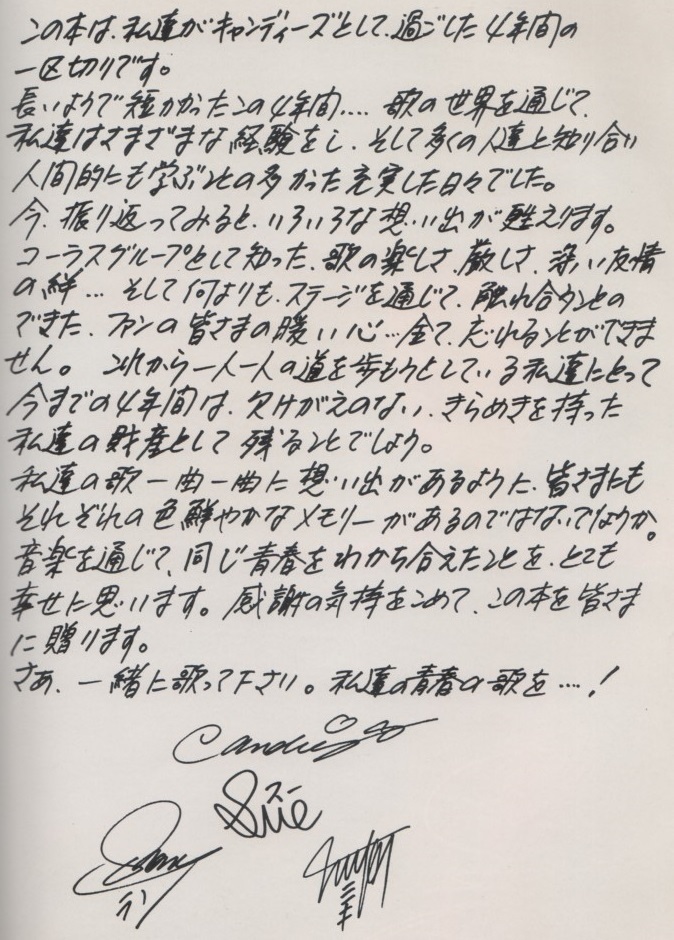 この本は、私達がキャンディーズとして、過ごした4年間の
一区切りです。
長いようで短かかったこの4年間.... 歌の世界を通じて、
私達はさまざまな経験をし、そして多くの人達と知り合い
人間的にも学ぶことの多かった充実した日々でした。
今、振り返ってみると、いろいろな想い出が甦えります。
コーラスグループとして知った、歌の楽しさ、厳しさ、深い友情
の絆... そして何よりも、ステージを通じて、触れ合うことの
できた、ファンの皆さまの暖い心...全て、忘れることができま
せん。 これから一人一人の道を歩もうとしている私達にとって
今までの4年間は、欠けがえのない、きらめきを持った
私達の財産として残ることでしょう。
私達の歌一曲一曲に想い出があるように、皆さまにも
それぞれの色鮮やかなメモリーがあるのではないでしょうか。
音楽を通じて、同じ青春をわかち合えたことを、とても
幸せに思います。感謝の気持をこめて、この本を皆さま
に贈ります。
さあ、一緒に歌って下さい。私達の青春の歌を....!
Candies
Sue スー
ラン
ミキ